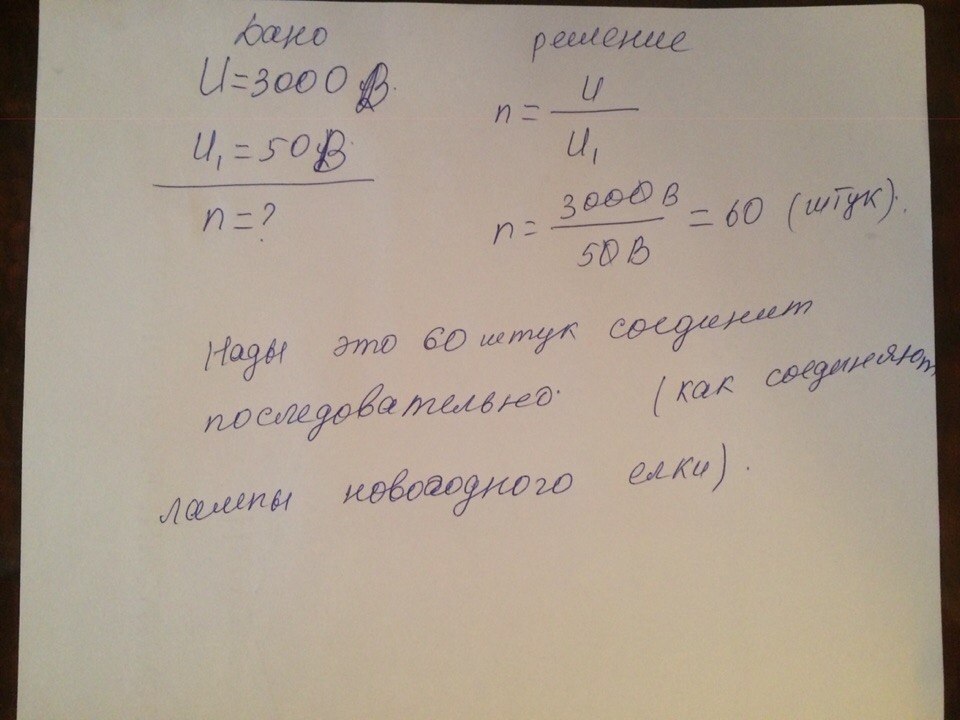 Дано
U=3000 В.
U₁=50В.
n=?
решение
n = U / U₁
n = 3000 В / 50 В = 60 (штук).
Нады это 60 штук соединит
последовательно. (как соединяют,
лампы новогодного елки).